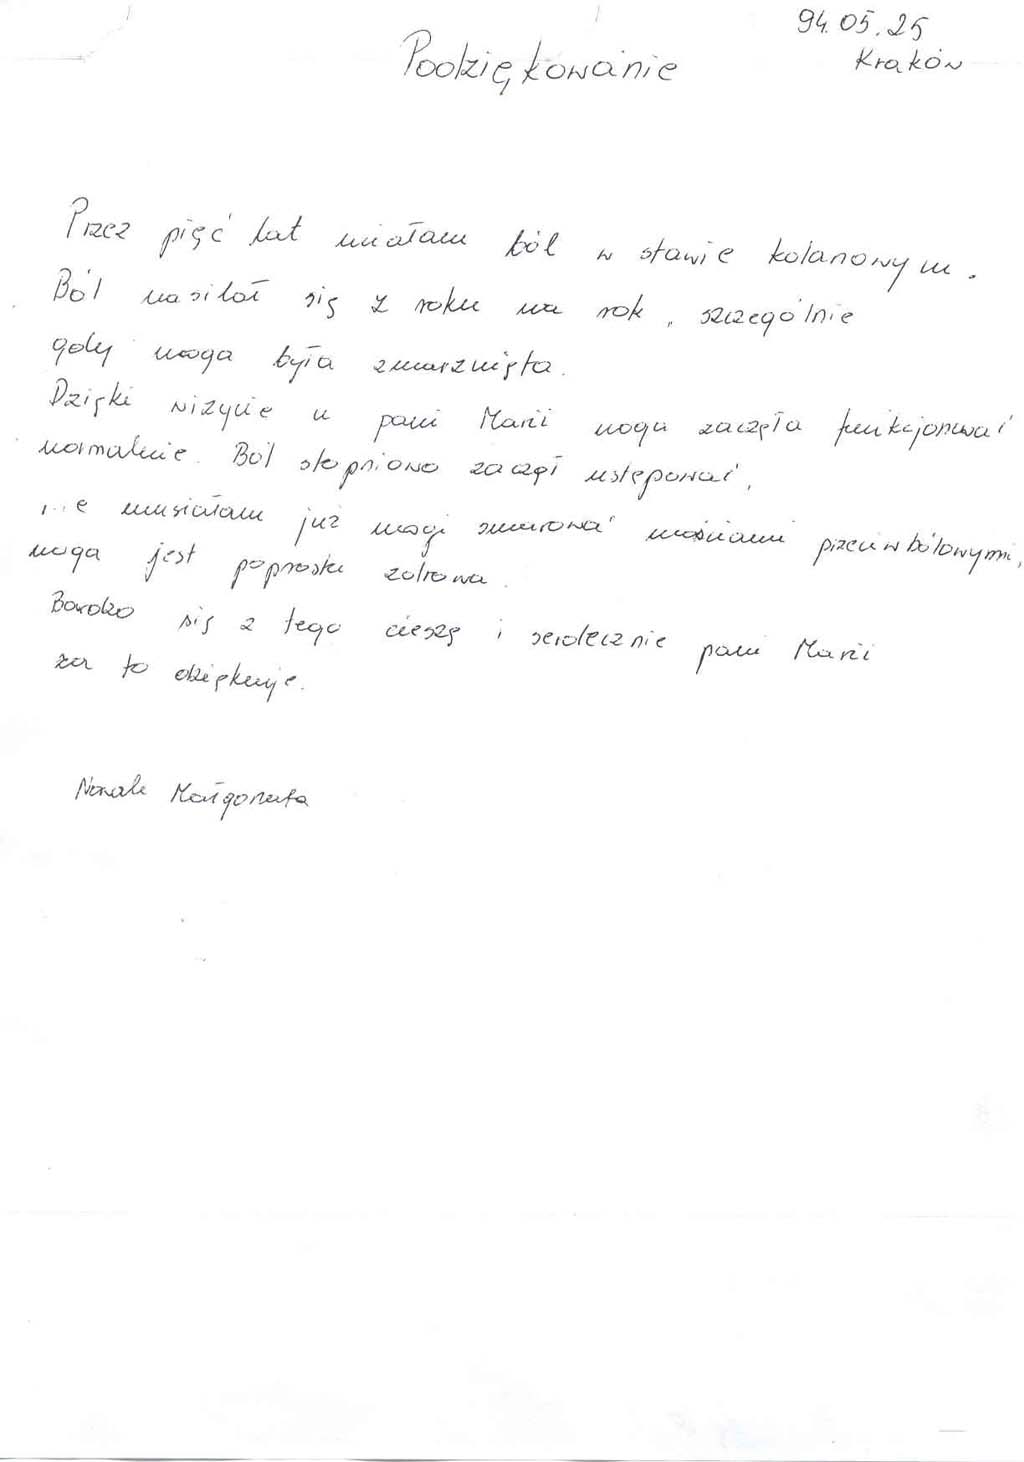 94.05.25
Kraków
Podziękowanie
Przez pięć lat miałam ból w stawie kolanowym.
Ból nasilał się z roku na rok, szczególnie
gdy noga była zmarznięta.
Dzięki wizycie u pani Marii noga zaczęła funkcjonować
normalnie. Ból stopniowo zaczął ustępować,
nie musiałam już nogi smarować maściami przeciwbólowymi,
noga jest poprostu zdrowa.
Bardzo się z tego cieszę i serdecznie pani Marii
za to dziękuję.
Nowak Małgorzata